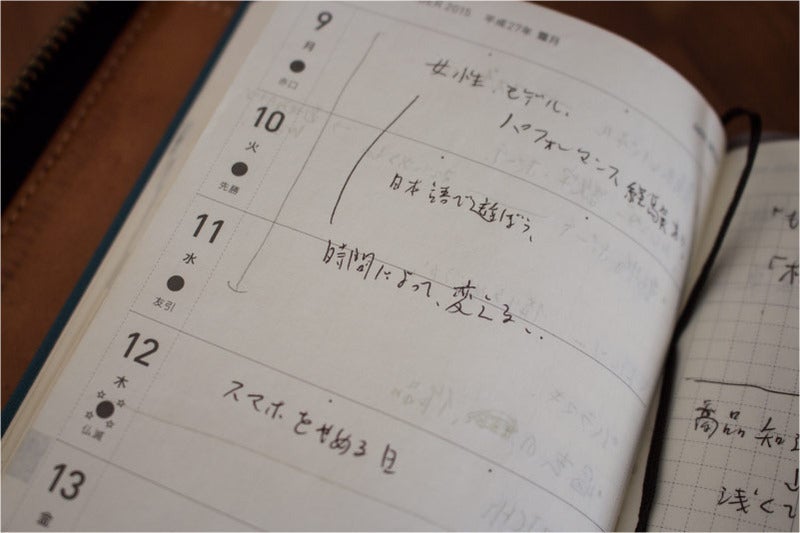 2015 平成27年 霜月
9
月
赤口
女性モデル、
パフォーマンス経験
10
火
先勝
日本語で遊ぼう、
11
水
友引
時間によって、変える、
12
木
仏滅
スマホをやめる日
13
金
商品知
↓
浅くて